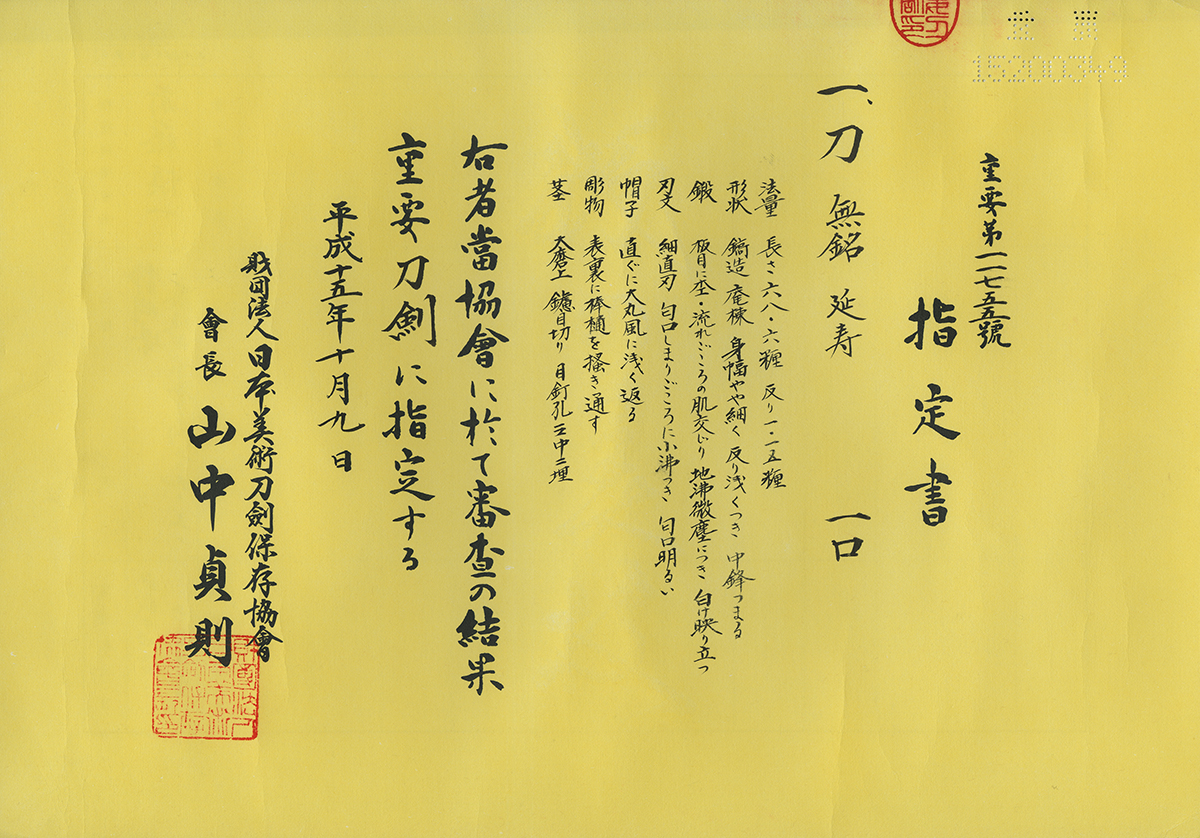 15200349
重要第一一七五五號
指定書
一、刀 無銘 延寿 一口
法量 長さ六八・六糎 反り一・一五糎
形状 鎬造 庵棟 身幅やや細く 反り浅くつき 中鋒つまる
鍛 板目に杢・流れごころの肌交じり 地沸微塵につき 白け映り立つ
刃文 細直刃 匂口しまりごころに小沸つき 匂口明るい
帽子 直ぐに大丸風に浅く返る
彫物 表裏に棒樋を掻き通す
茎 大磨上 鑢目切り 目釘孔三中二埋
右者當協會に於て審査の結果
重要刀剣に指定する
平成十五年十月九日
財団法人日本美術刀劍保存協會
會長 山中貞則